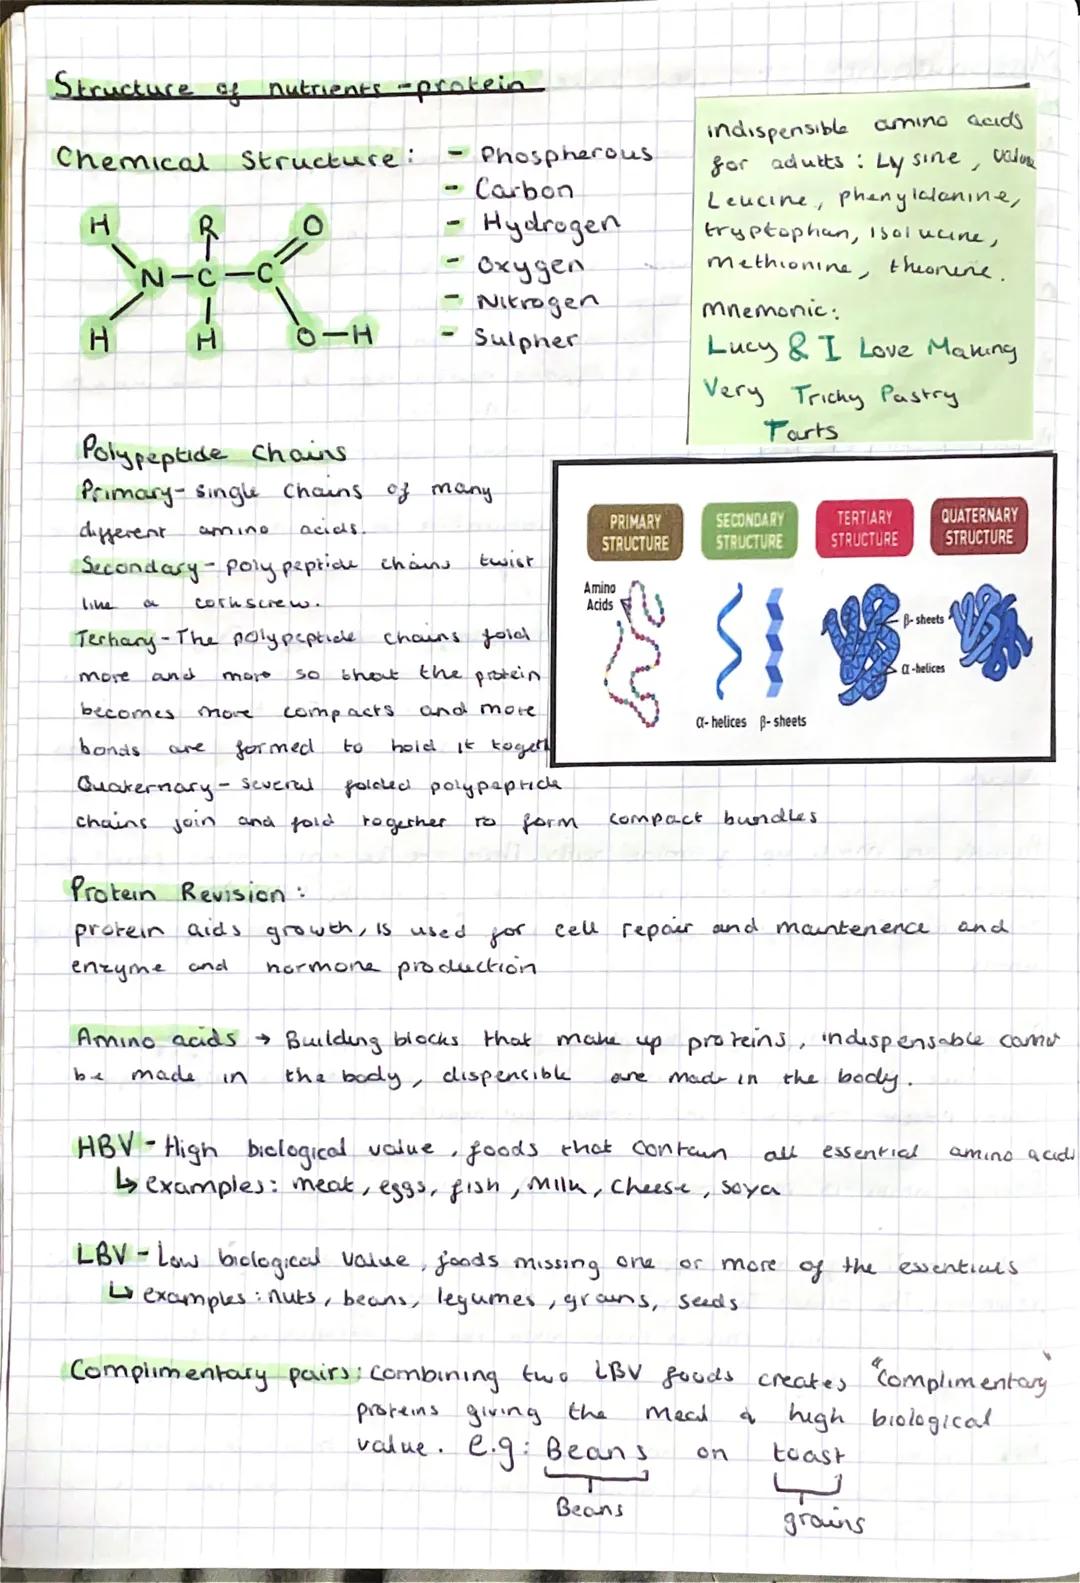 Structure of nutrients - protein
Chemical Structure:
- Phospherous
- Carbon
- Hydrogen
- Oxygen
- Nitrogen
- Sulpher
H R O
N-C-C
H H O-H
indispensible amino acids
for adults: Lysine, valine
Leucine, phenylalanine,
tryptophan, isolucine,
methionine, theonine.
mnemonic:
Lucy & I Love Making
Very Trichy Pastry
Tarts
Polypeptide chains
Primary- single chains of many
different amino acids.
Secondary- polypeptide chains twist
like a corkscrew.
Tertiary- The polypeptide chains fold
more and more so that the protein
becomes more compacts and more
bonds are formed to hold it togeth
Quaternary- several folded polypeptide
chains join and fold together to form compact bundles
PRIMARY STRUCTURE
SECONDARY STRUCTURE
TERTIARY STRUCTURE
QUATERNARY STRUCTURE
Amino
Acids
β-sheets
α-helices
α-helices β-sheets
Protein Revision:
protein aids growth, is used for cell repair and maintenence and
enzyme and hormone production
Amino acids → Building blocks that make up proteins, indispensable cannot
be made in the body, dispensible are made in the body.
HBV - High biological value, foods that contain all essential amino acids
↳ examples: meat, eggs, fish, milk, cheese, soya
LBV - Low biological value, foods missing one or more of the essentials
↳ examples: nuts, beans, legumes, grains, seeds
Complimentary pairs: combining two LBV foods creates "complimentary"
proteins giving the meal a high biological
value. e.g: Beans on toast
Beans grains